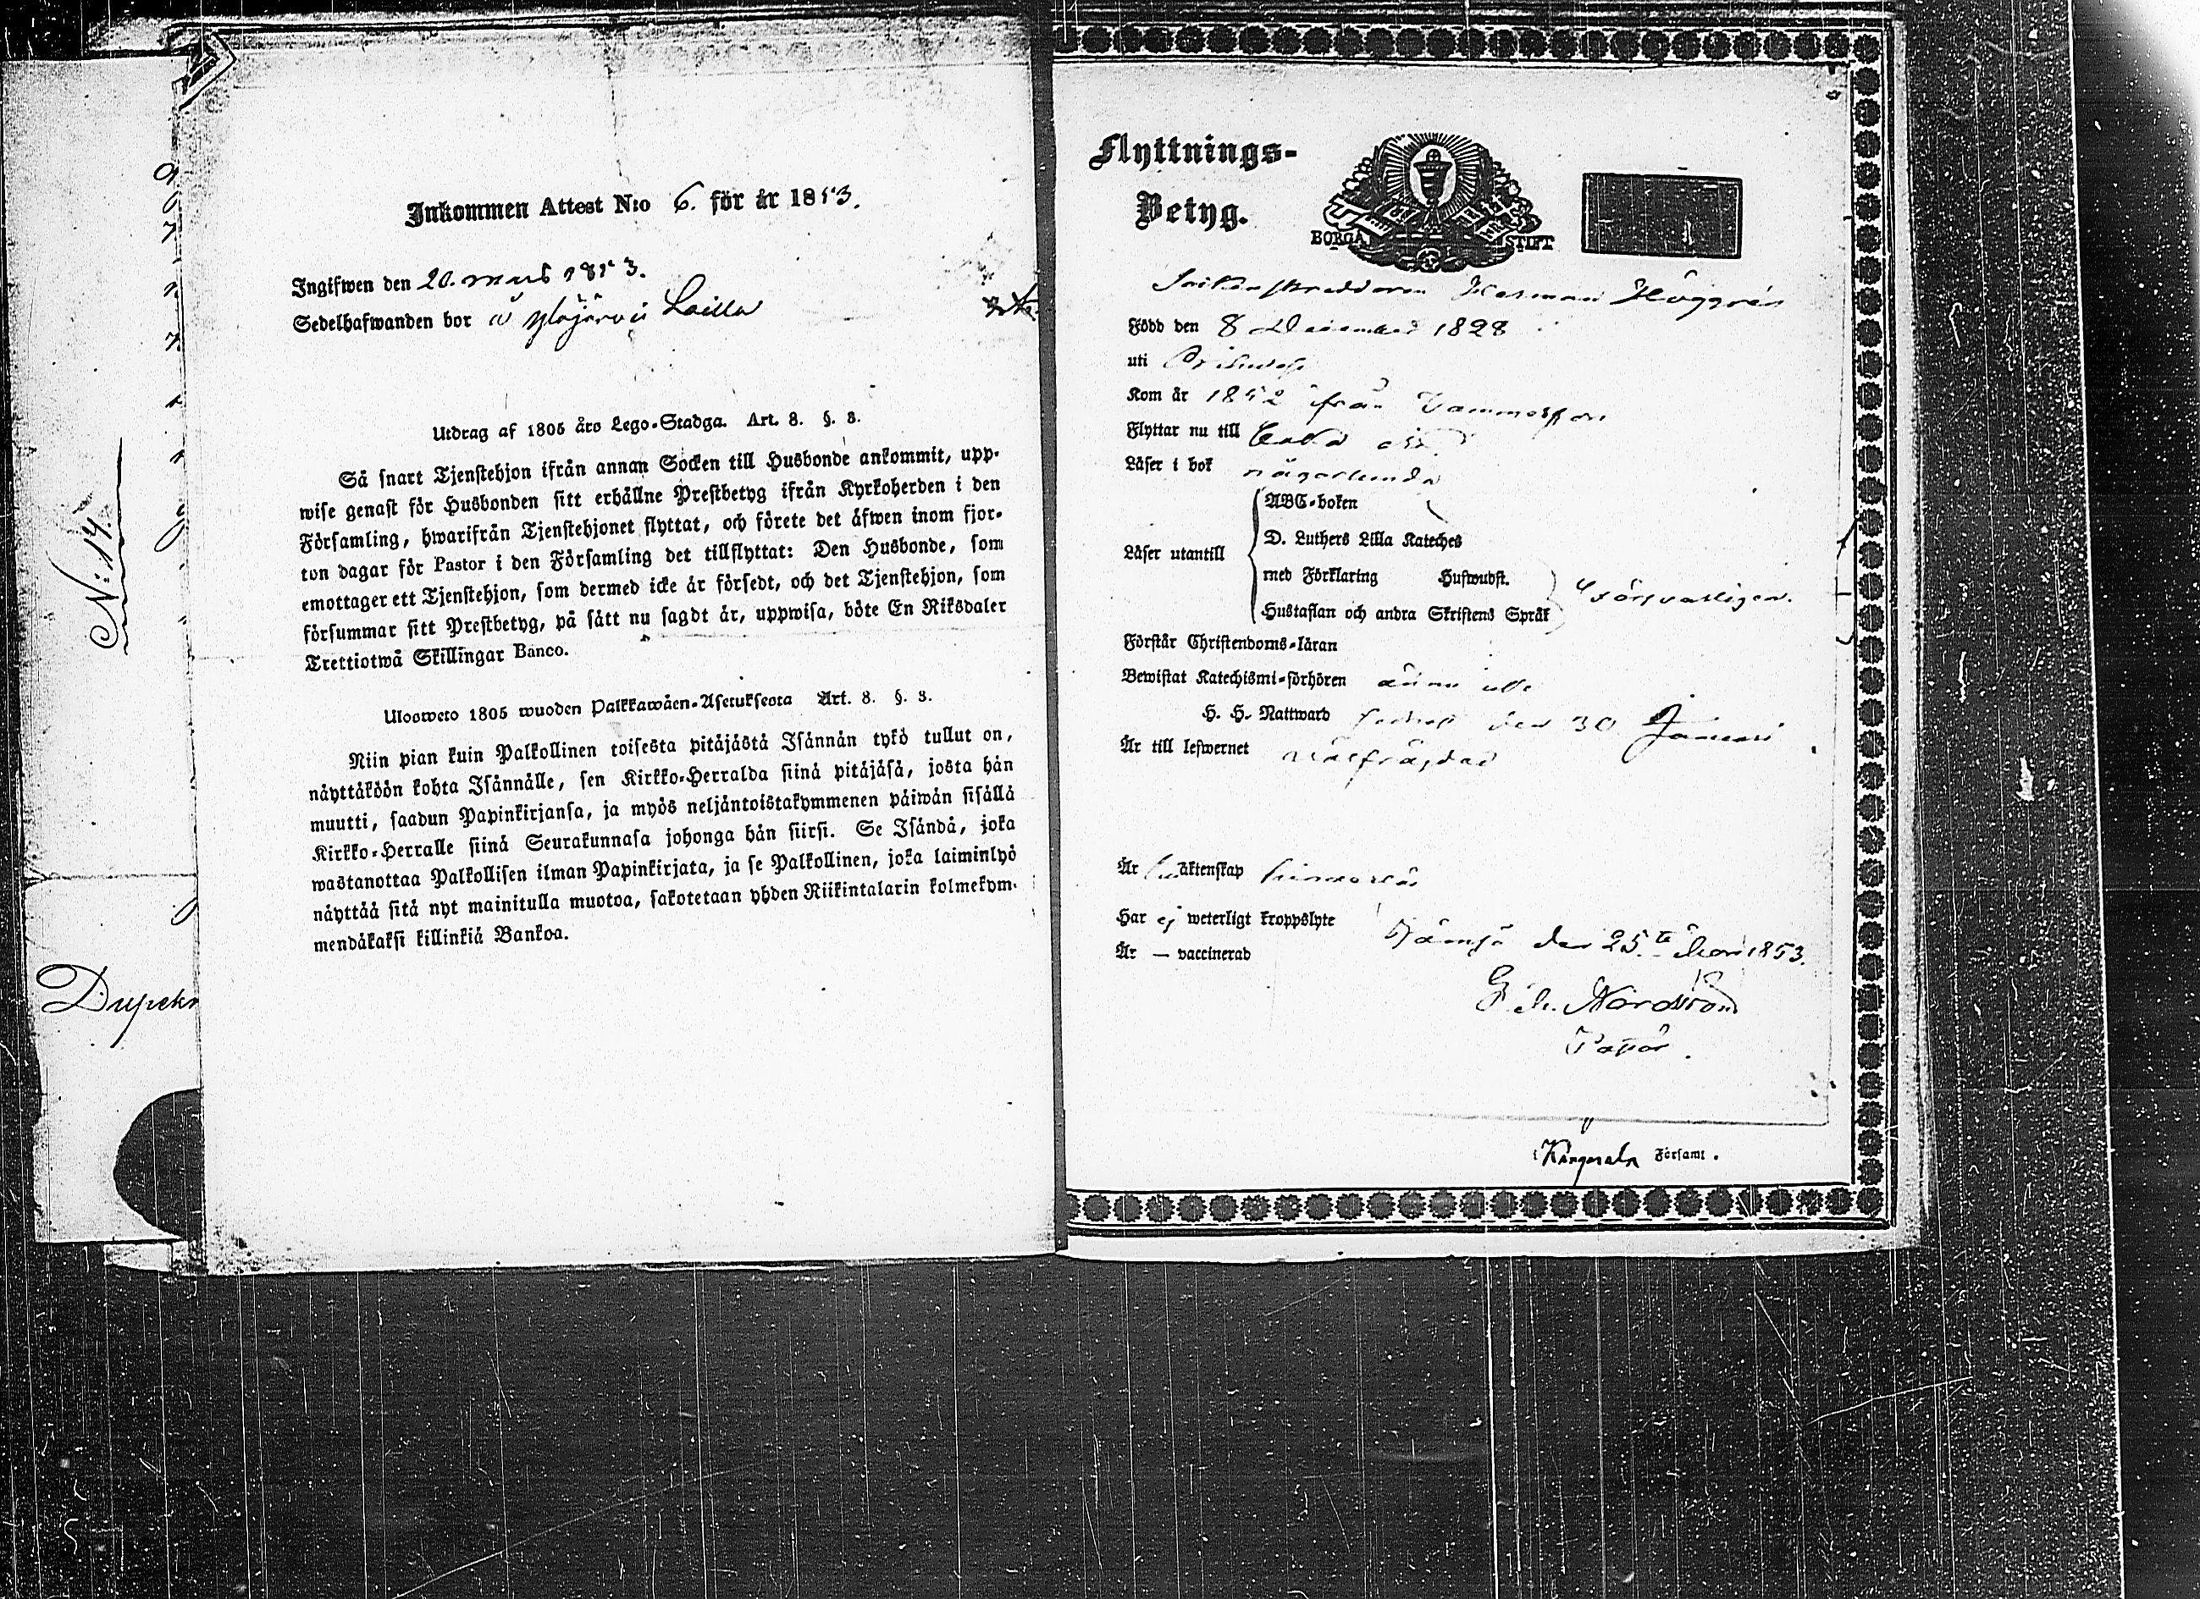 N: 14.
Inkommen Attest N:o 6. för år 1853.
Ingifwen den 20. mars 1853.
Sedelhafwanden bor å Ylöjärvi Lailla
Utdrag af 1805 års Lego-Stadga. Art. 8. §. 3.
Så snart Tjenstehjon ifrån annan Socken till Husbonde ankommit, upp-
wise genast för Husbonden sitt erhållne Prestbetyg ifrån Kyrkoherden i den
Församling, hwarifrån Tjenstehjonet flyttat, och förete det äfwen inom fjor-
ton dagar för Pastor i den Församling det tillflyttat: Den Husbonde, som
emottager ett Tjenstehjon, som dermed icke är försedt, och det Tjenstehjon, som
försummar sitt Prestbetyg, på sätt nu sagdt är, uppwisa, böte En Riksdaler
Trettiotwå Skillingar Banco.
Ulosweto 1805 wuoden Palkkawäen-Asetuksesta Art. 8. §. 3.
Niin pian kuin Palkollinen toisesta pitäjästä Isännän tykö tullut on,
näyttäköön kohta Isännälle, sen Kirkko-Herralda siinä pitäjäsä, josta hän
muutti, saadun Papinkirjansa, ja myös neljäntoistakymmenen päiwän sisällä
Kirkko-Herralle siinä Seurakunnasa johonga hän siirsi. Se Isändä, joka
wastanottaa Palkollisen ilman Papinkirjata, ja se Palkollinen, joka laiminlyö
näyttää sitä nyt mainitulla muotoa, sakotetaan yhden Riikintalarin kolmekym-
mendäkaksi killinkiä Bankoa.
Flyttnings-
Betyg.
BORGÅ STIFT
Sockenskreddaren Herman Häggrén
Född den 8 December 1828
uti
Kom år 1852 ifrån Tammerfors
Flyttar nu till
Läser i bok någorlunda
Läser utantill
ABC-boken
D. Luthers Lilla Kateches
med Förklaring Huswudst.
Hustaflan och andra Skriftens Språk
försvarligen.
Förstår Christendoms-läran
Bewistat Katechismi-förhören ännu icke
H. H. Nattward sednast den 30 Januari
Är till lefwernet välfrägdad
Är äktenskap
Har ej weterligt kroppslyte
Är — vaccinerad
Jämsä den 25.te 1853.
Nordström
Pastor.
Kangasala Församl.